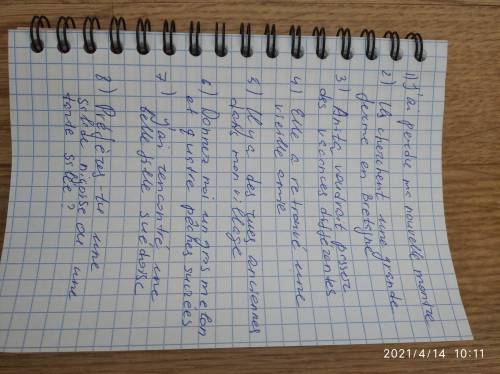 1) J'ai perdu ma nouvelle montre
2) Ils cherchent une grande
ferme en Bretagne
3) Anita voudrait passer
des vacances différentes
4) Elle a retrouvé une
vieille amie
5) Il y a des rues anciennes
dans mon village
6) Donnez moi un gros melon
et quatre pêches sucrées
7) J'ai rencontré une
belle fille suédoise
8) Préfères-tu une
salade niçoise ou une
2021/4/14 10:11